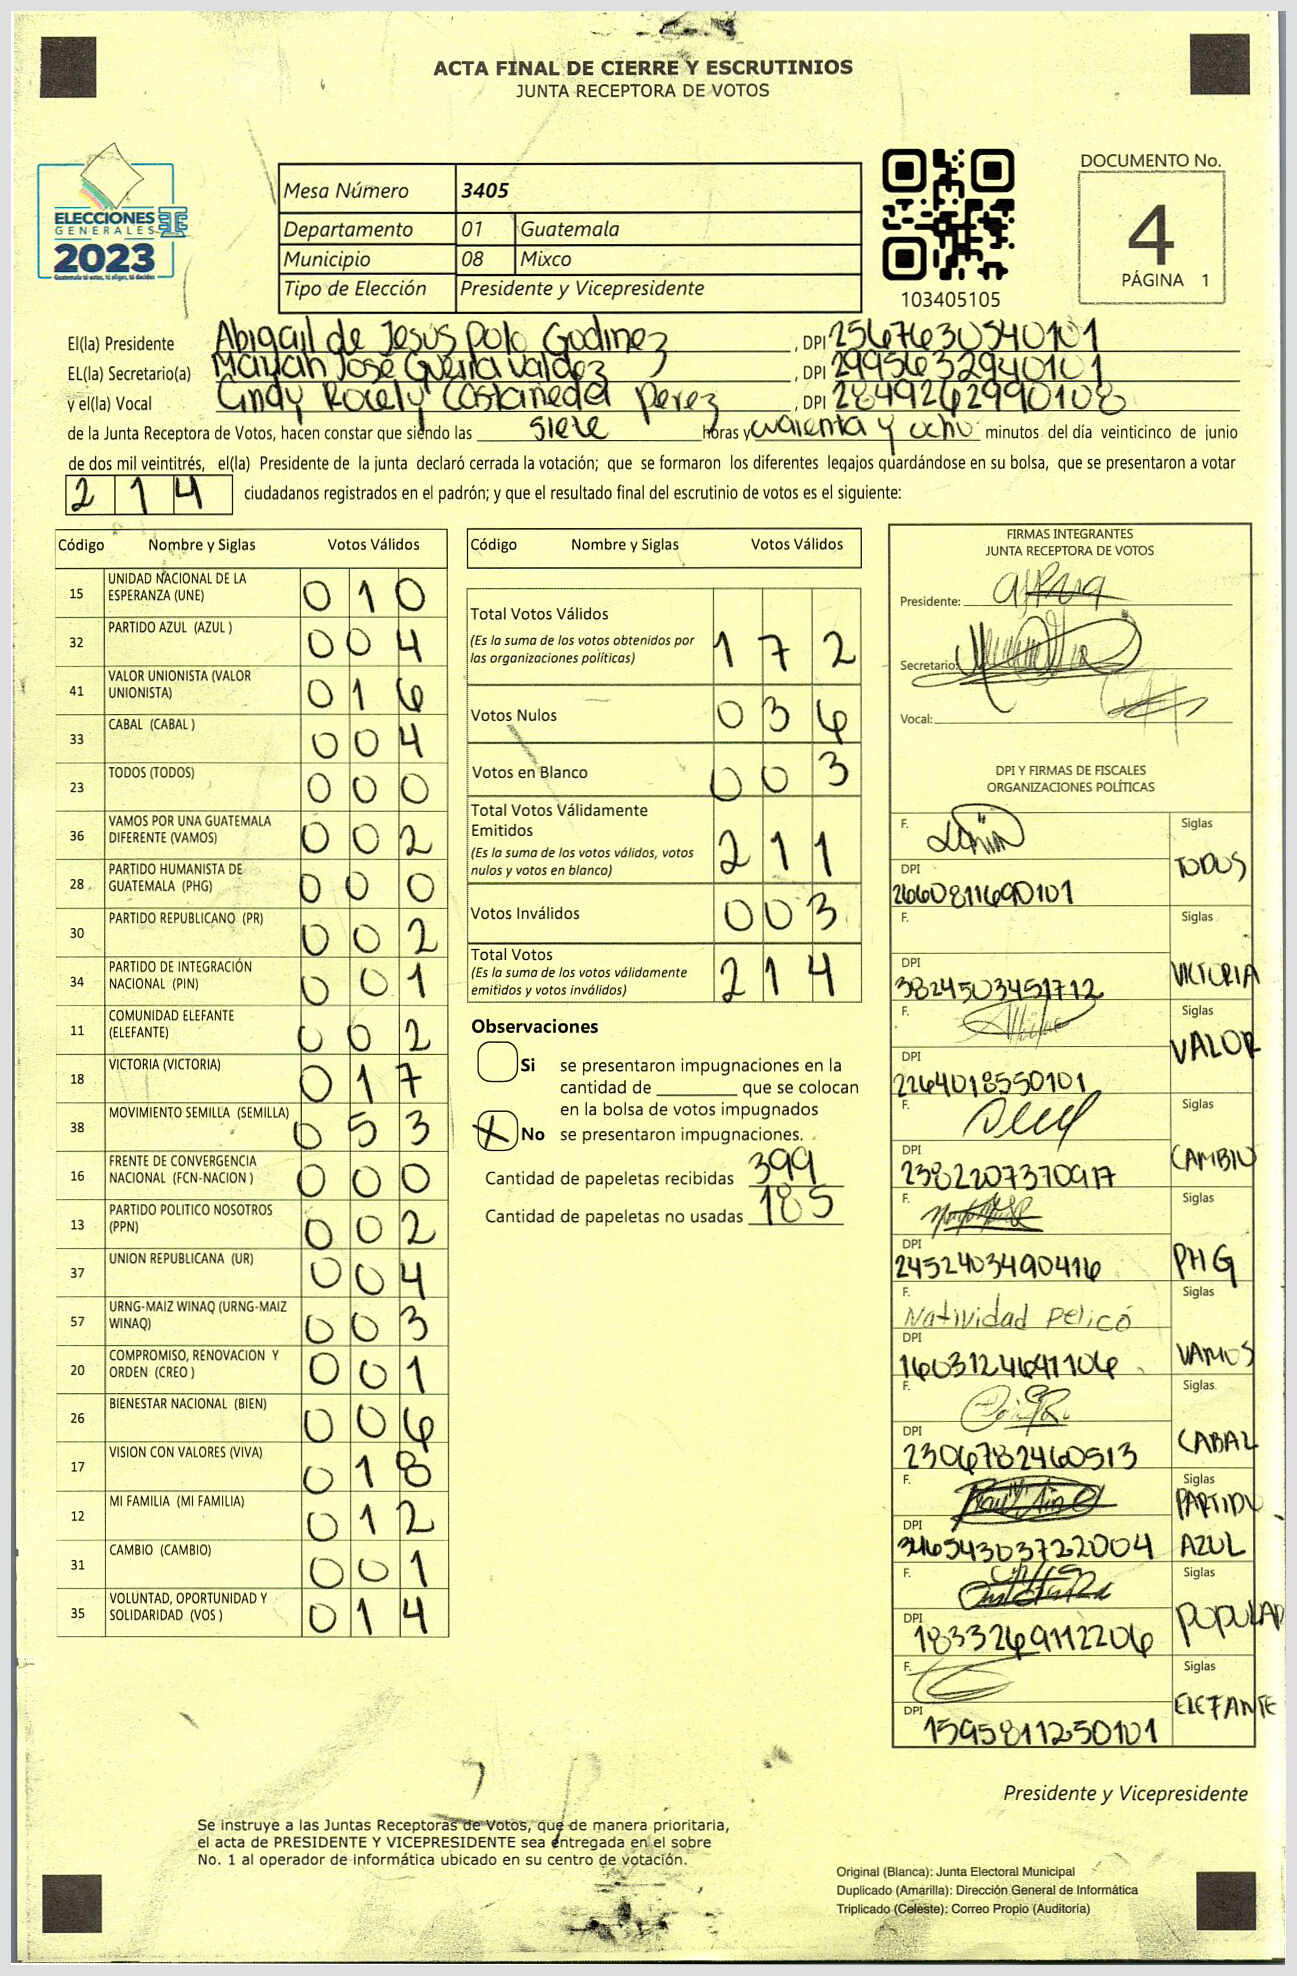 ACTA FINAL DE CIERRE Y ESCRUTINIOS
JUNTA RECEPTORA DE VOTOS
ELECCIONES
GENERALES
2023
Guatemala tú votas, tú eliges, tú decides
Mesa Número 3405
Departamento 01 Guatemala
Municipio 08 Mixco
Tipo de Elección Presidente y Vicepresidente
103405105
DOCUMENTO No.
4
PÁGINA 1
El(la) Presidente Abigail de Jesús Polo Godinez, DPI 2567630540101
EL(la) Secretario(a) José Guerra Valdez, DPI 2995632940101
y el(la) Vocal Cindy Rocely Castañeda Perez, DPI 2849262990108
de la Junta Receptora de Votos, hacen constar que siendo las siete horas y cuarenta y ocho minutos del día veinticinco de junio
de dos mil veintitrés, el(la) Presidente de la junta declaró cerrada la votación; que se formaron los diferentes legajos guardándose en su bolsa, que se presentaron a votar
214 ciudadanos registrados en el padrón; y que el resultado final del escrutinio de votos es el siguiente:
Código Nombre y Siglas Votos Válidos
15 UNIDAD NACIONAL DE LA ESPERANZA (UNE) 010
32 PARTIDO AZUL (AZUL ) 004
41 VALOR UNIONISTA (VALOR UNIONISTA) 016
33 CABAL (CABAL ) 004
23 TODOS (TODOS) 000
36 VAMOS POR UNA GUATEMALA DIFERENTE (VAMOS) 002
28 PARTIDO HUMANISTA DE GUATEMALA (PHG) 000
30 PARTIDO REPUBLICANO (PR) 002
34 PARTIDO DE INTEGRACIÓN NACIONAL (PIN) 001
11 COMUNIDAD ELEFANTE (ELEFANTE) 002
18 VICTORIA (VICTORIA) 017
38 MOVIMIENTO SEMILLA (SEMILLA) 053
16 FRENTE DE CONVERGENCIA NACIONAL (FCN-NACION ) 000
13 PARTIDO POLITICO NOSOTROS (PPN) 002
37 UNION REPUBLICANA (UR) 004
57 URNG-MAIZ WINAQ (URNG-MAIZ WINAQ) 003
20 COMPROMISO, RENOVACION Y ORDEN (CREO ) 001
26 BIENESTAR NACIONAL (BIEN) 006
17 VISION CON VALORES (VIVA) 018
12 MI FAMILIA (MI FAMILIA) 012
31 CAMBIO (CAMBIO) 001
35 VOLUNTAD, OPORTUNIDAD Y SOLIDARIDAD (VOS ) 014
Código Nombre y Siglas Votos Válidos
Total Votos Válidos 172
(Es la suma de los votos obtenidos por
las organizaciones políticas)
Votos Nulos 036
Votos en Blanco 003
Total Votos Válidamente
Emitidos 211
(Es la suma de los votos válidos, votos
nulos y votos en blanco)
Votos Inválidos 003
Total Votos 214
(Es la suma de los votos válidamente
emitidos y votos inválidos)
Observaciones
Si se presentaron impugnaciones en la
cantidad de ________ que se colocan
en la bolsa de votos impugnados
X No se presentaron impugnaciones.
Cantidad de papeletas recibidas 399
Cantidad de papeletas no usadas 185
FIRMAS INTEGRANTES
JUNTA RECEPTORA DE VOTOS
Presidente:
Secretario:
Vocal:
DPI Y FIRMAS DE FISCALES
ORGANIZACIONES POLÍTICAS
F. Siglas TODOS
DPI 2660811690101
F. Siglas VICTORIA
DPI 3824503451712
F. Siglas VALOR
DPI 2264018550101
F. Siglas CAMBIO
DPI 2382207370917
F. Siglas PHG
DPI 2452403490416
F. Natividad Pelicó Siglas VAMOS
DPI 1603124691106
F. Siglas CABAL
DPI 2306782460513
F. Siglas PARTIDO AZUL
DPI 34654303722004
F. Siglas POPULAR
DPI 1833269112206
F. Siglas ELEFANTE
DPI 1595811250101
Presidente y Vicepresidente
Se instruye a las Juntas Receptoras de Votos, que de manera prioritaria,
el acta de PRESIDENTE Y VICEPRESIDENTE sea entregada en el sobre
No. 1 al operador de informática ubicado en su centro de votación.
Original (Blanca): Junta Electoral Municipal
Duplicado (Amarilla): Dirección General de Informática
Triplicado (Celeste): Correo Propio (Auditoría)